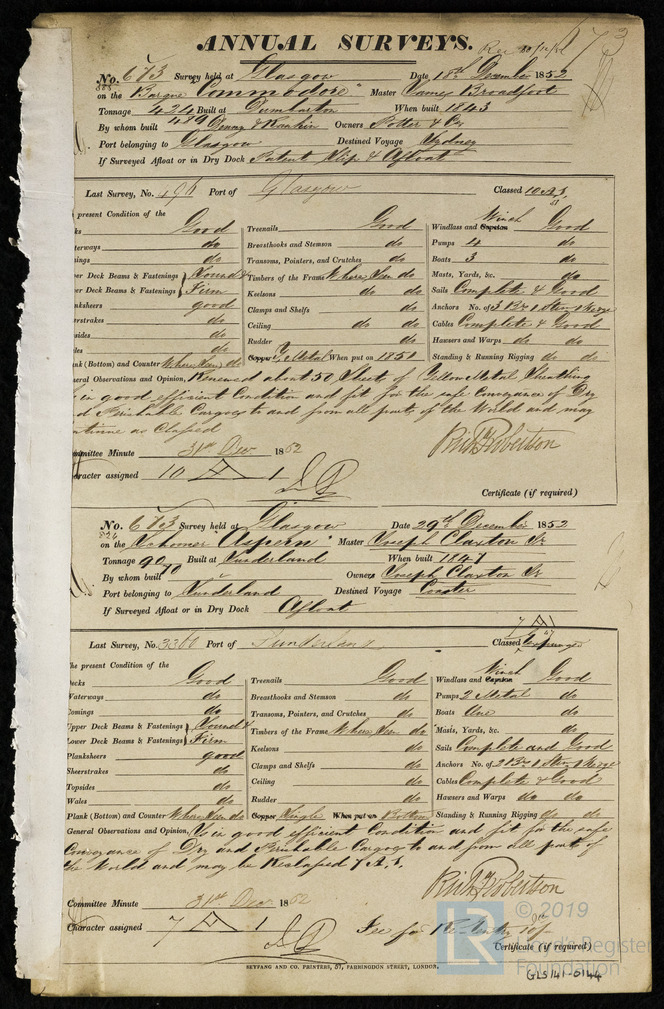 ANNUAL SURVEYS.
673
No. 673 Survey held at Glasgow Date 18th December 1852
on the Barque "Commodore" Master James Broadfoot
Tonnage 424 Built at Dumbarton When built 1843
By whom built Denny & Rankin Owners Potter & Co
Port belonging to Glasgow Destined Voyage Sydney
If Surveyed Afloat or in Dry Dock Patent Slip & Afloat
Last Survey, No. 496 Port of Glasgow Classed 10 A 1
present Condition of the
Good Treenails Good Windlass and Capstan Winch Good
terways do Breasthooks and Stemson do Pumps 4 do
mings do Transoms, Pointers, and Crutches do Boats 3 do
per Deck Beams & Fastenings Sound & Timbers of the Frame Where Seen do Masts, Yards, &c. do
wer Deck Beams & Fastenings Firm Keelsons do do Sails Complete & Good
nksheers good Clamps and Shelfs do Anchors No. of 3 Br 1 Stm 1 Kedge
eerstrakes do Ceiling do do Cables Complete & Good
sides do Rudder do Hawsers and Warps do do
les do Copper Y Metal When put on 1850 Standing & Running Rigging do do
nk (Bottom) and Counter Where Seen do
eral Observations and Opinion, Renewed about 50 Sheets of Yellow Metal Sheathing
is in good efficient Condition and fit for the safe Conveyance of Dry
d Perishable Cargoes to and from all parts of the World and may
tinue as Classed
Richd Robertson
mmittee Minute 31st Dec 1852
aracter assigned 10 A 1
Certificate (if required)
No. 673 Survey held at Glasgow Date 29th December 1852
on the Schooner "Aspern" Master Joseph Claxton Jr
Tonnage 90 Built at Sunderland When built 1847
By whom built Owners Joseph Claxton Jr
Port belonging to Sunderland Destined Voyage Coaster
If Surveyed Afloat or in Dry Dock Afloat
Last Survey, No. 3360 Port of Sunderland Classed
he present Condition of the
Decks Good Treenails Good Windlass and Capstan Winch Good
Waterways do Breasthooks and Stemson do Pumps 2 Metal do
Comings do Transoms, Pointers, and Crutches do Boats One do
Upper Deck Beams & Fastenings Sound & Timbers of the Frame Where Seen do Masts, Yards, &c. do
Lower Deck Beams & Fastenings Firm Keelsons do Sails Complete and Good
Planksheers good Clamps and Shelfs do Anchors No. of 2 Br 1 Stm 1 Kedge
Sheerstrakes do Ceiling do Cables Complete & Good
Topsides do Rudder do Hawsers and Warps do do
Wales do Copper Single When put on Bottom Standing & Running Rigging do do
Plank (Bottom) and Counter Where Seen do
General Observations and Opinion, Is in good efficient Condition and fit for the safe
Conveyance of Dry and Perishable Cargoes to and from all parts of
the World and may be Reclassed 7 A 1.
Richd Robertson
Committee Minute 31st Dec 1852
Character assigned 7 A 1
Fee for
Certificate (if required)
SEYFANG AND CO. PRINTERS, 57, FARRINGDON STREET, LONDON.
© 2019
LR
Lloyd's Register
Foundation
GLS141-0144